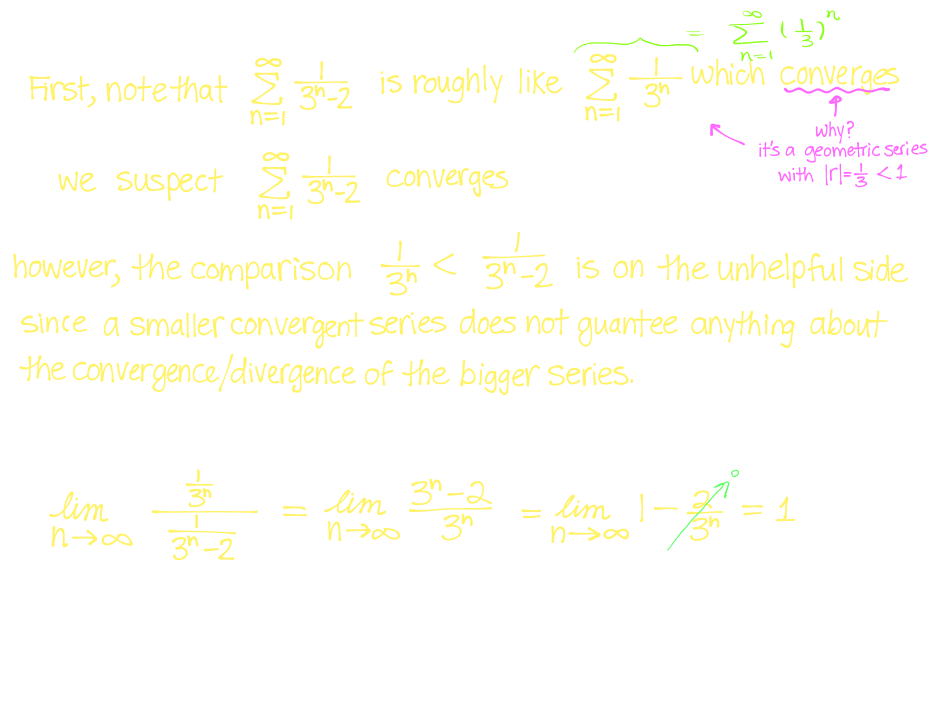 = ∑_{n=1}^{∞} (1/3)^n
First, note that ∑_{n=1}^{∞} 1/(3^n-2) is roughly like ∑_{n=1}^{∞} 1/3^n which converges
why?
it's a geometric series
with |r|=1/3 < 1
we suspect ∑_{n=1}^{∞} 1/(3^n-2) converges
however, the comparison 1/3^n < 1/(3^n-2) is on the unhelpful side
since a smaller convergent series does not guantee anything about
the convergence/divergence of the bigger series.
lim_{n→∞} (1/3^n)/(1/(3^n-2)) = lim_{n→∞} (3^n-2)/3^n = lim_{n→∞} 1 - 2/3^n → 0 = 1